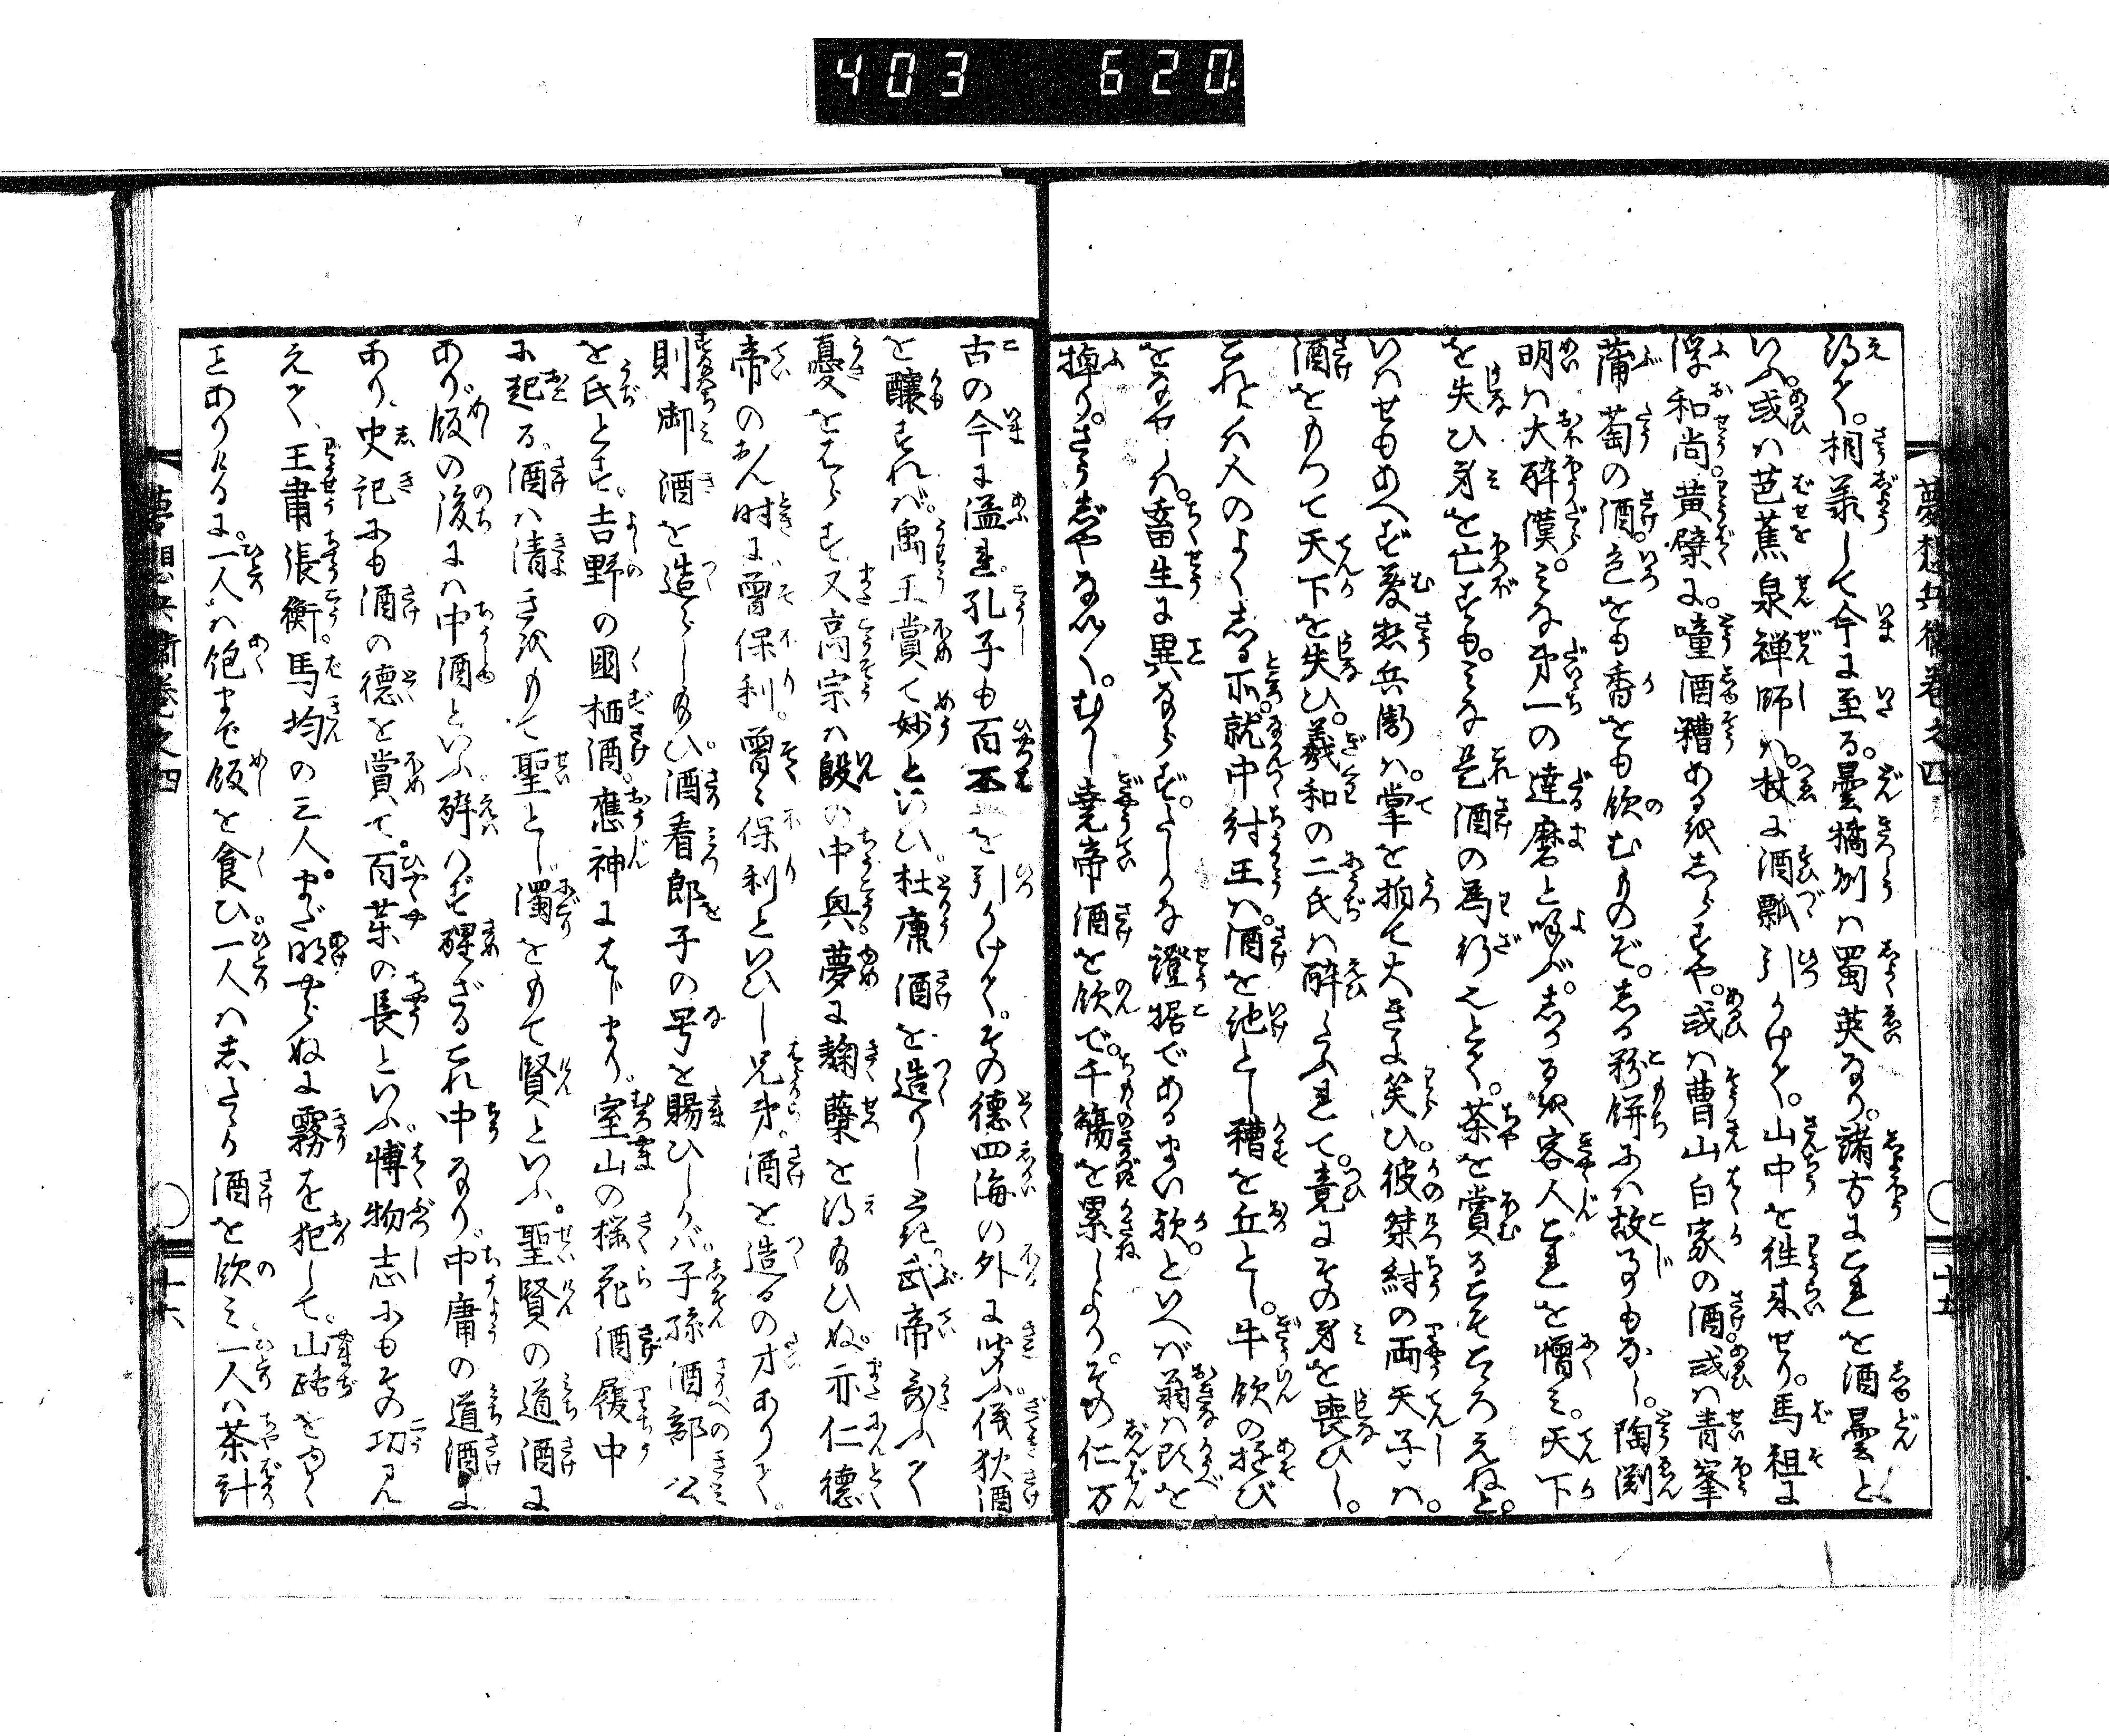 403 620
夢想兵衛巻之四 十五
得て。相羕して今に至る。曇橘州は蜀英なり。諸方にこれを酒曇と
いふ。或は芭蕉泉禅師は。杖に酒瓢引かけて。山中を往来せり。馬祖に
浮和尚。黄檗に。噇酒糟ある或しらずや。或は曹山白家の酒。或は青峯
蒲萄の酒。色をも香をも飲むものぞ。しる粉餅には故事もなし。陶渕
明は大酔漢。みな第一の達磨と呼ぶ。しかる或客人これを憎み。天下
を失ひ身を亡すも。みな是酒の為行也とて。茶を賞ることそこゝろえねと。
いはせもあへず夢想兵衛は。掌を拍て大きに笑ひ。彼桀紂の両天子は。
酒をもつて天下を失ひ。羲和の二氏は酔たふれて。竟にその身を喪ひし。
これは人のよくしる所。就中紂王は。酒を池とし糟を丘とし。牛飲の遊び
をなせしは。畜生に異ならず。たしかな證据であるまい歟。といへば翁は頭を
掉り。さうじやない〳〵。むかし堯帝酒を飲で。千觴を累しより。その仁万
古の今に溢れ。孔子も百盃を引かけて。その徳四海の外に聞ふ。儀狄酒
を醸すれば。禹王賞て妙といひ。杜康酒を造りしとき。武帝歌ふて
憂をわらす。又高宗は殷の中興夢に麹蘖を得給ひぬ。亦仁徳
帝のおん時に。曽保利。曽々保利といひし兄弟。酒を造るの才ありて。
則御酒を造らしめ給ひ。酒看郎子の号を賜ひしかば。子孫酒部公
を氏とす。吉野の國栖酒。應神にはじまり。室山の桜花酒履中
に起る。酒は清きをもて聖とし濁をもて賢といふ。聖賢の道酒に
あり。飯の後には中酒といふ。酔はず醒ざるこれ中なり。中庸の道酒に
あり。史記にも酒の徳を賞て。百薬の長といふ。博物志にもその功見
えて、王肅張衡馬均の三人。まだ明やらぬに霧を犯して。山路をゆく
ことありけるに。一人は飽まで飯を食ひ。一人はしたゝか酒を飲み一人は茶計
夢想兵衛巻之四 十六